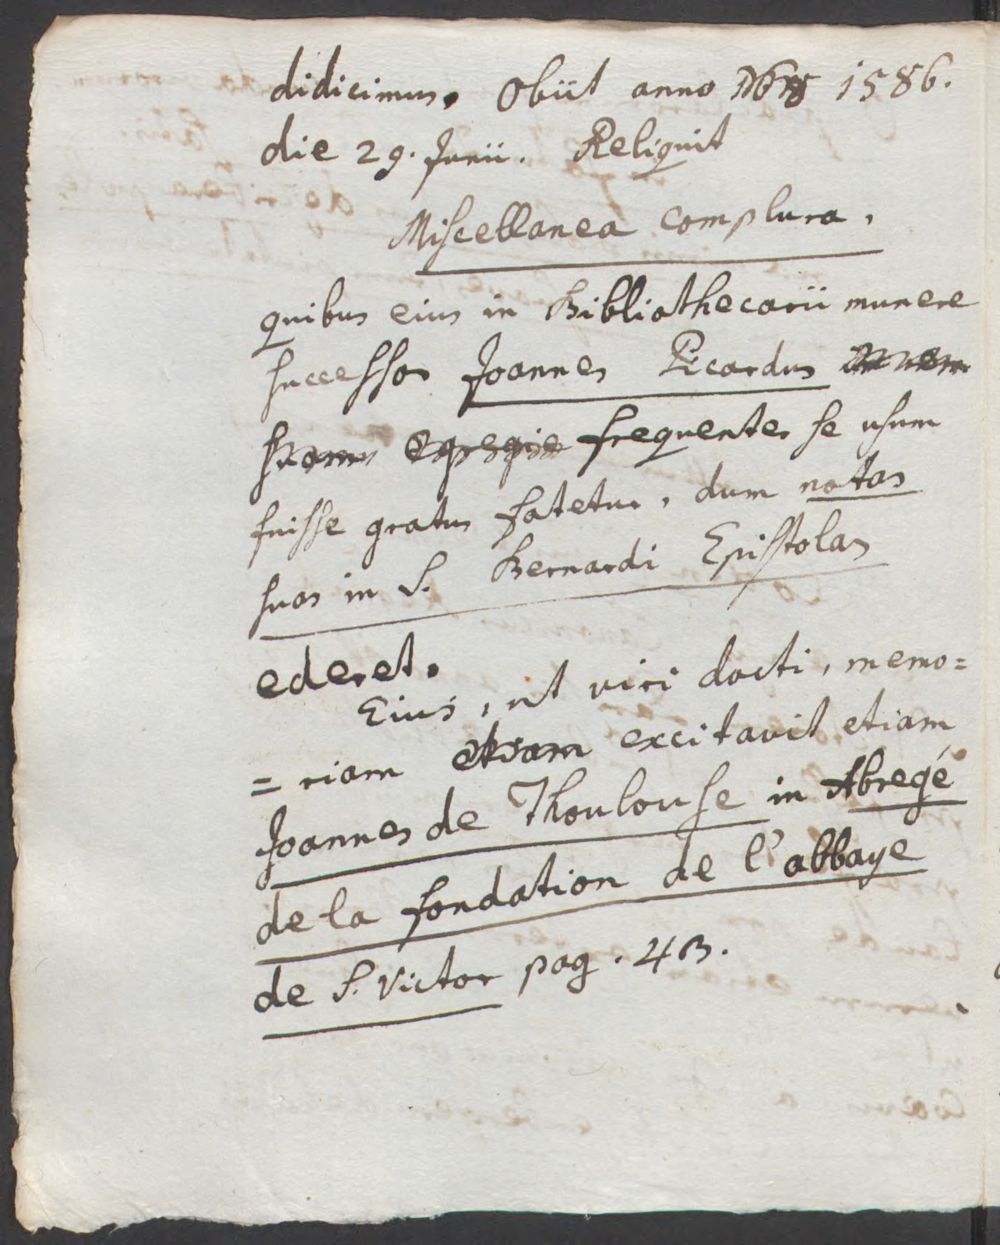 didicimus. Obiit anno 1586.
die 29. Junii. Reliquit
Miscellanea complura,
quibus eius in Bibliothecarii munere
successor Joannes Picardus
frequenter se usum
fuisse gratus fatetur, dum notas
suas in S. Bernardi Epistolas
ederet.
Eius, ut viri docti, memo=
=riam etiam excitavit etiam
Joannes de Thoulouse in Abregé
de la fondation de l'abbaye
de S. Victor pag. 43.